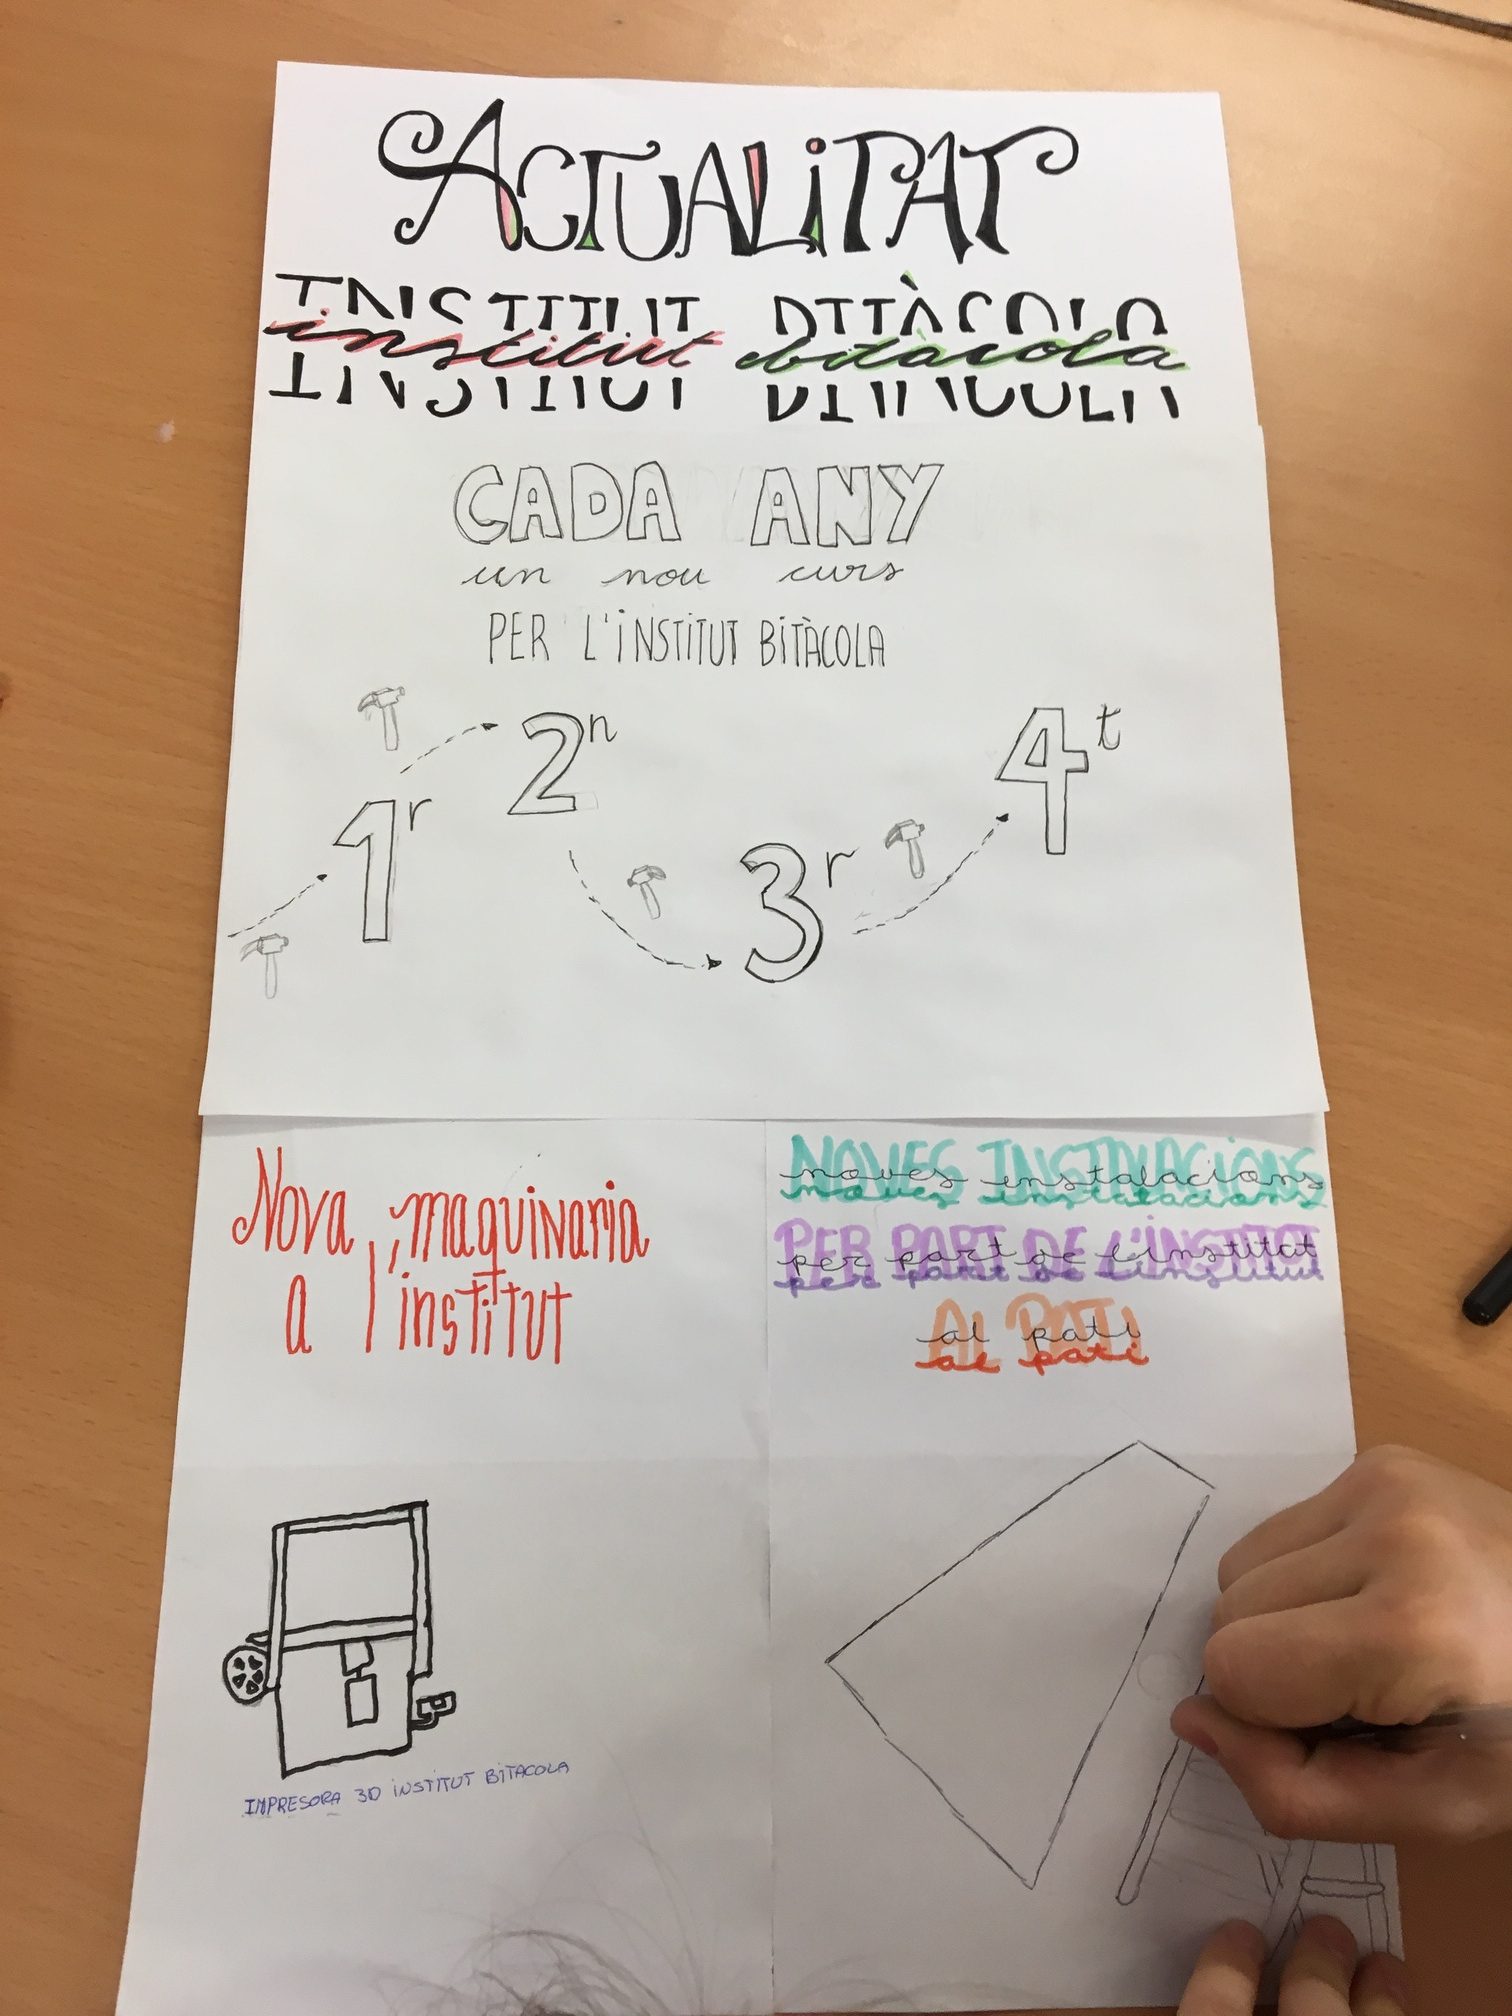 ACTUALITAT
INSTITUT BITÀCOLA
institut bitàcola
CADA ANY
un nou curs
PER L'INSTITUT BITÀCOLA
1r 2n 3r 4t
Nova maquinaria
a l'institut
NOVES INSTALACIONS
noves instalacions
noves instalacions
PER PART DE L'INSTITUT
per part de l'institut
per part de l'institut
AL PATI
al pati
al pati
IMPRESORA 3D INSTITUT BITACOLA